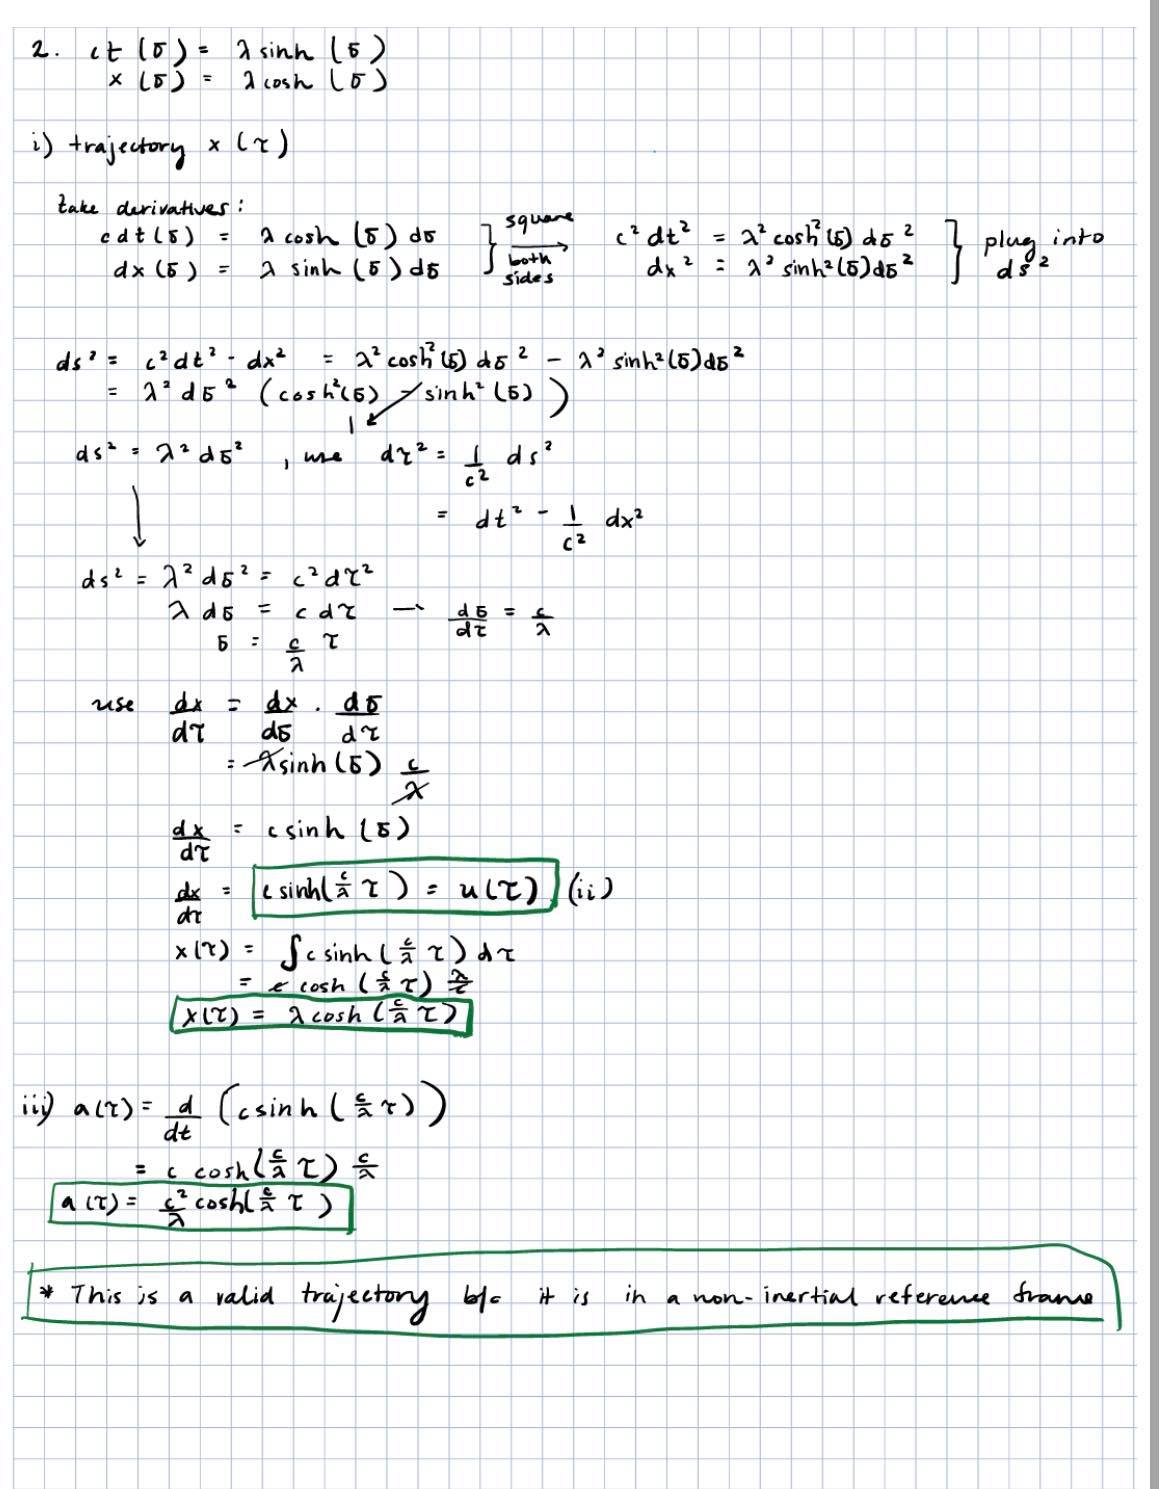 2. ct (σ) = λ sinh (σ)
x (σ) = λ cosh (σ)
i) trajectory x (τ)
take derivatives:
c dt (σ) = λ cosh (σ) dσ } square both sides → c² dt² = λ² cosh² (σ) dσ² } plug into ds²
dx (σ) = λ sinh (σ) dσ dx² = λ² sinh² (σ) dσ²
ds² = c² dt² - dx² = λ² cosh² (σ) dσ² - λ² sinh² (σ) dσ²
= λ² dσ² (cosh² (σ) - sinh² (σ))
1
ds² = λ² dσ² , use dτ² = 1/c² ds²
= dt² - 1/c² dx²
ds² = λ² dσ² = c² dτ²
λ dσ = c dτ → dσ/dτ = c/λ
σ = c/λ τ
use dx/dτ = dx/dσ · dσ/dτ
= λ sinh (σ) c/λ
dx/dτ = c sinh (σ)
dx/dτ = c sinh (c/λ τ) = u(τ) (ii)
x(τ) = ∫ c sinh (c/λ τ) dτ
= c cosh (c/λ τ) λ/c
x(τ) = λ cosh (c/λ τ)
iii) a(τ) = d/dt (c sinh (c/λ τ))
= c cosh (c/λ τ) c/λ
a(τ) = c²/λ cosh (c/λ τ)
* This is a valid trajectory b/c it is in a non-inertial reference frame